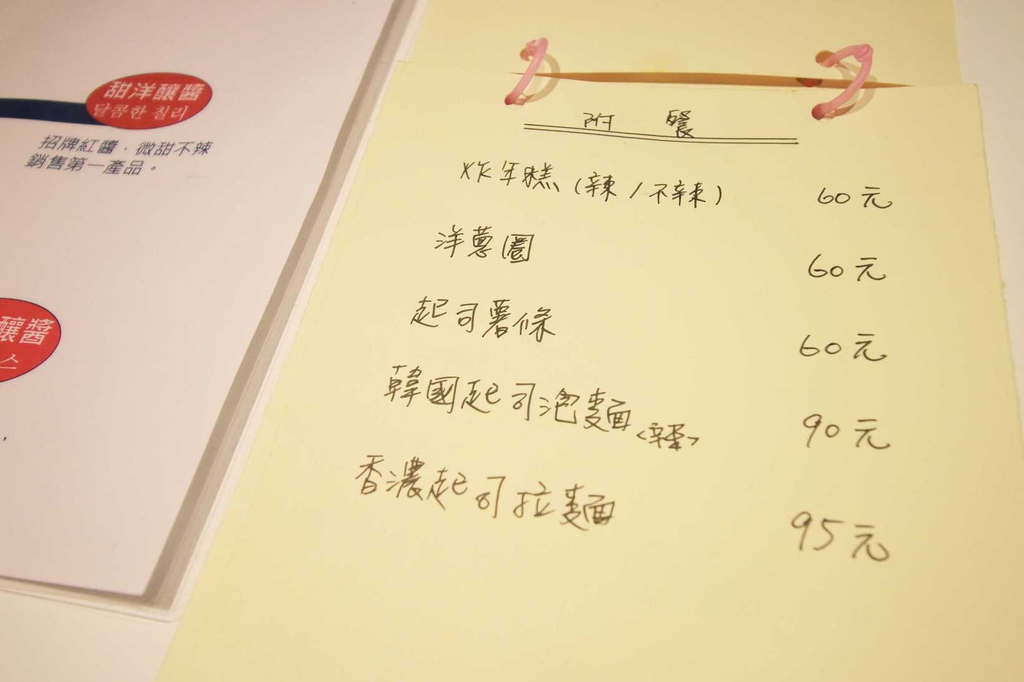 甜洋釀醬
달콤한 칠리
招牌紅醬．微甜不辣
銷售第一產品。
釀醬
스
附 餐
炸年糕(辣/不辣) 60元
洋蔥圈 60元
起司薯條 60元
韓國起司泡麵 90元
香濃起司拉麵 95元